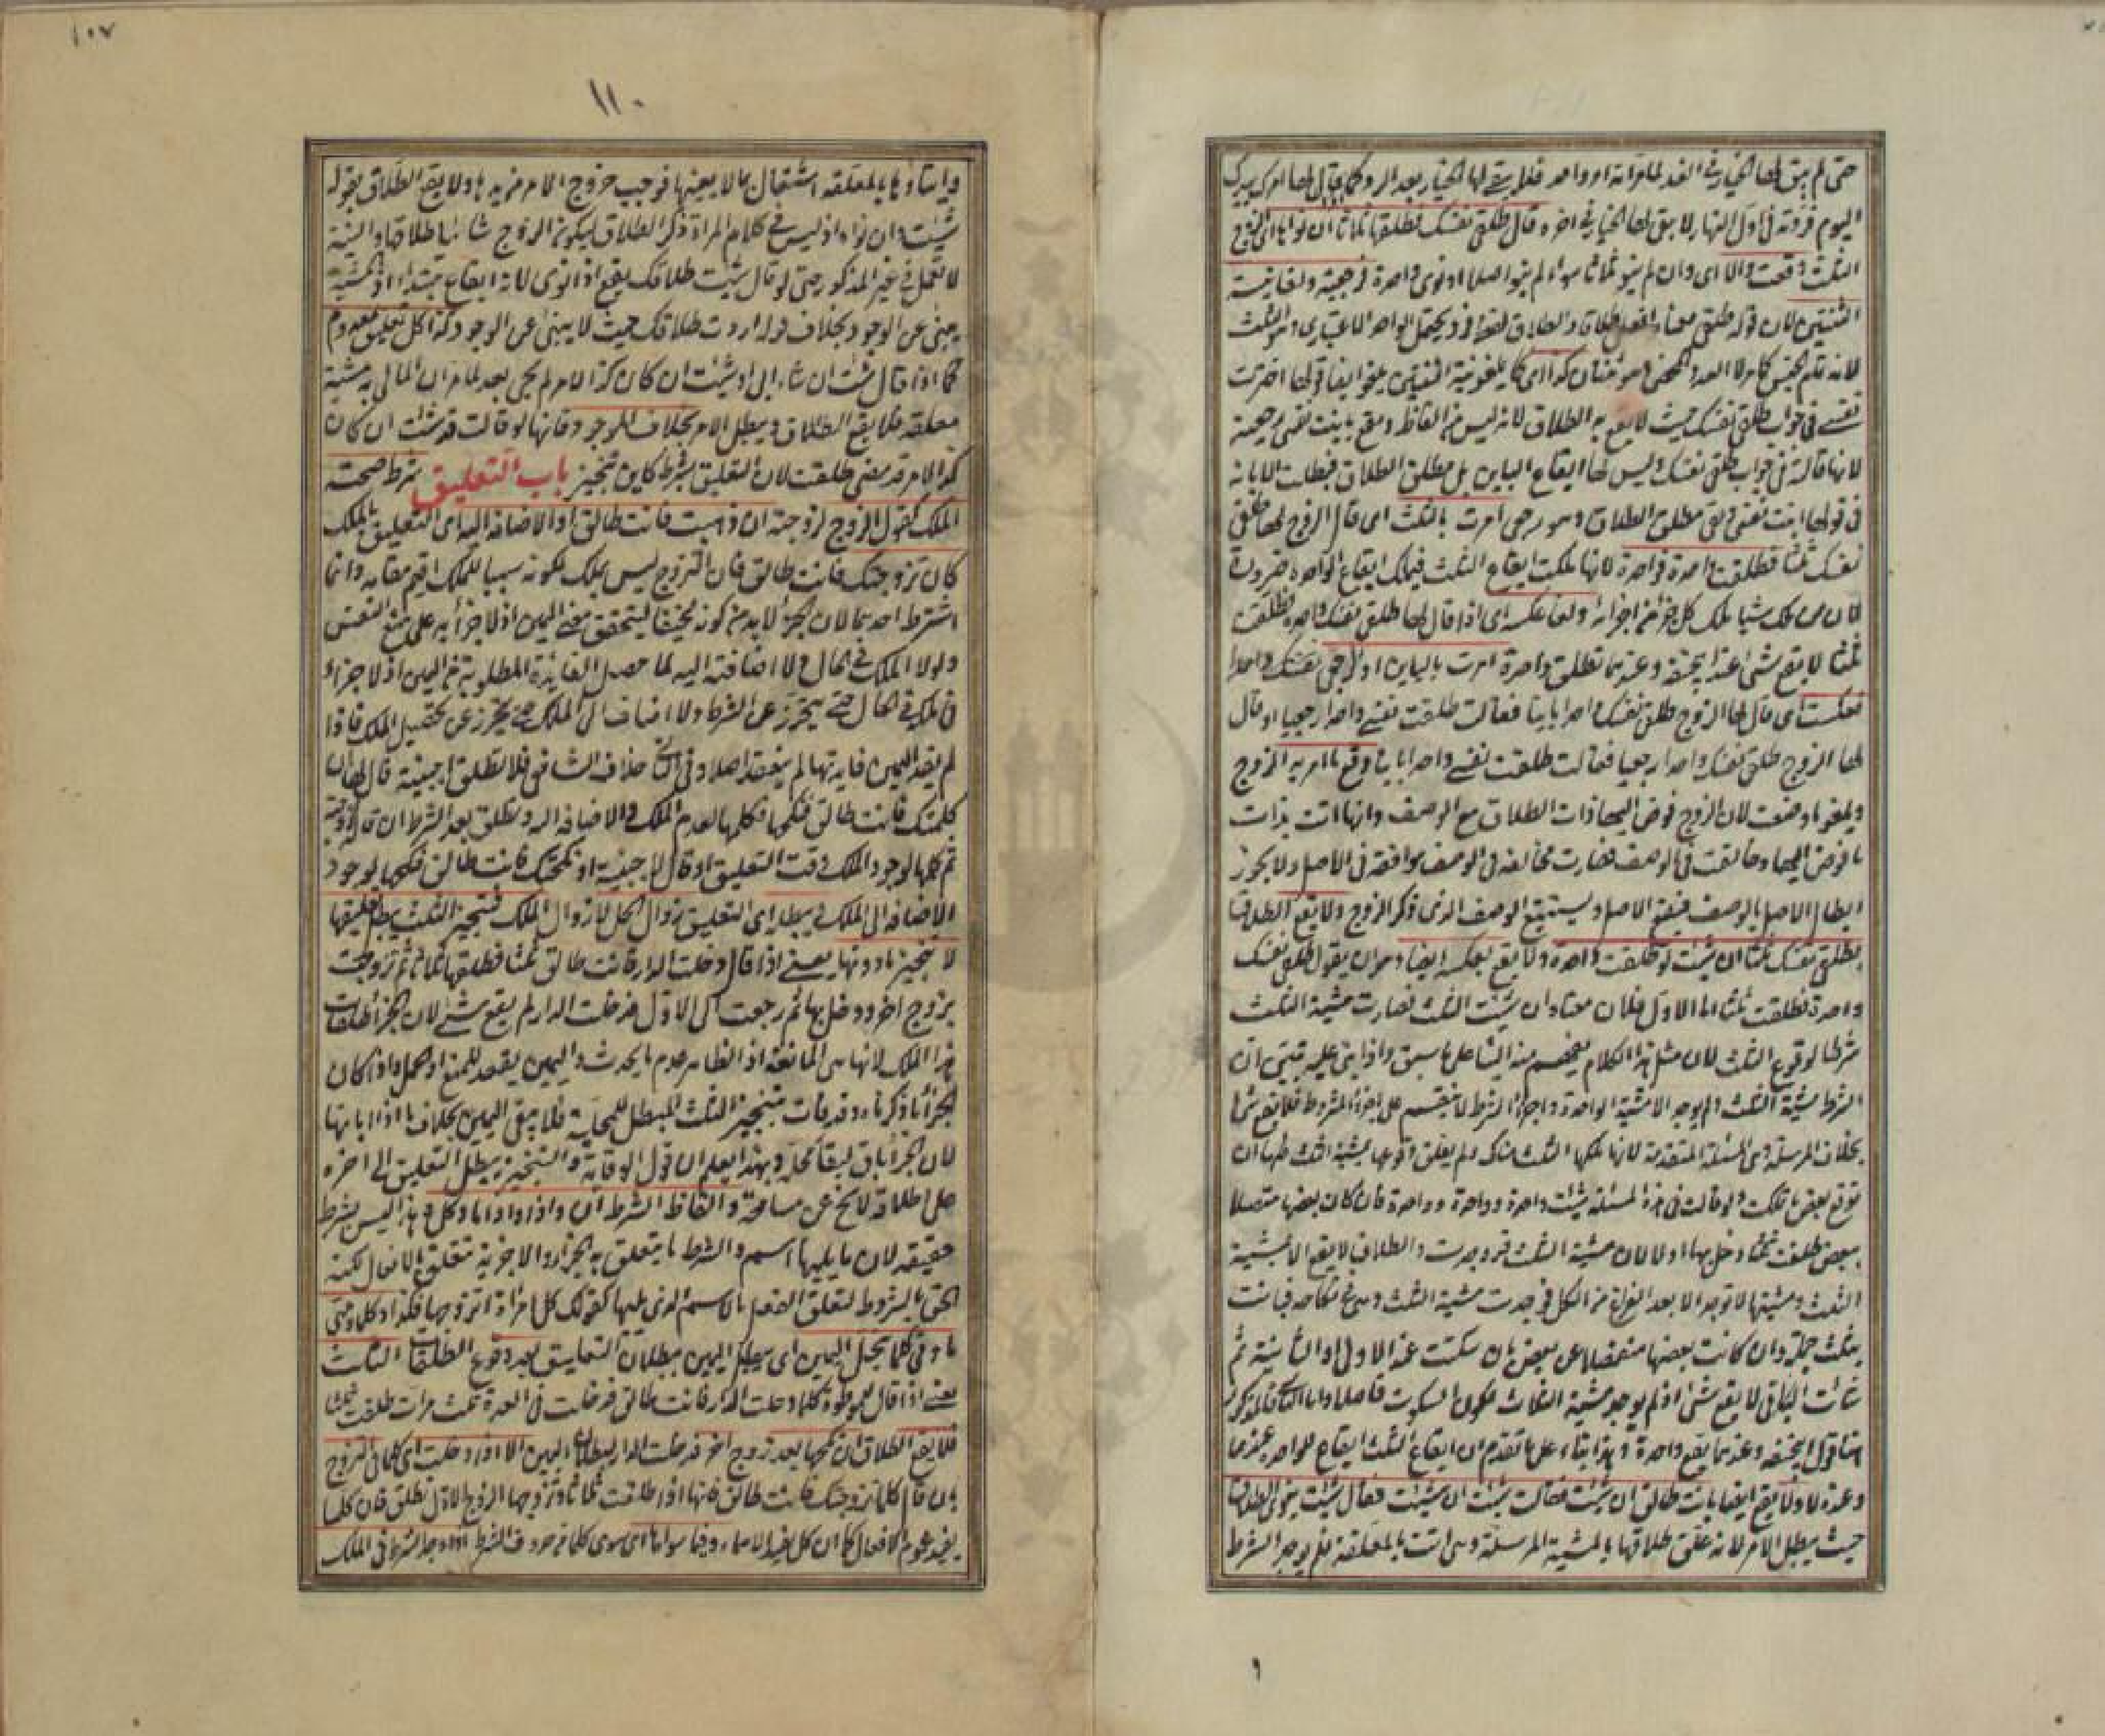 حتى لم يبق لها الخيار في الغد لما مر انه امر واحد فلا يبقى لها الخيار بعد الرد كما يقال لها امرك بيدك
اليوم فردته في اول النهار لا يبق لها الخيار في اخره قال طلقي نفسك فطلقها ثلاثا ان نواها اي الزوج
الثلث وقعت والا اي وان لم ينو ثلاثا سواء لم ينو اصلا او نوى واحدة فرجعية ولغا نية
الثنتين لان قوله طلقي معناه افعلي طلاقا والطلاق لفظ فرد يحتمل الواحد الاعتباري وهو الثلث
لانه تمام الجنس كامر لا العدد المحض وهو ثنتان كذا اي كما يلغو نية الثنتين يلغو ايضا قولها اخترت
نفسي في جواب طلقي نفسك حيث لا يقع به الطلاق لانه ليس من الفاظه ويقع بابنت نفسي رجعية
لانها قالته في جواب طلقي نفسك وليس لها ايقاع الباين بل مطلق الطلاق فبطلت الابانة
في قولها ابنت نفسي وبقي مطلق الطلاق وهو رجعي امرت بالثلث اي قال الزوج لها طلقي
نفسك ثلثا فطلقت واحدة فواحدة لانها ملكت ايقاع الثلث فيملك ايقاع الواحدة ضرورة
لان من ملك شيا ملك كل جزء من اجزائه ولغا عكسه اي اذا قال لها طلقي نفسك واحدة فطلقت
ثلثا لا يقع شئ عند ابيحنيفه وعندهما تطلق واحدة امرت بالباين او الرجعي نفسك واحدا
فعكست اي قال لها الزوج طلقي نفسك واحدا باينا فقالت طلقت نفسي واحدا رجعيا او قال
لها الزوج طلقي نفسك واحدا رجعيا فقالت طلقت نفسي واحدا باينا وقع ما امر به الزوج
ويلغو ما وصفت لان الزوج فوض اليها ذات الطلاق مع الوصف وانها اتت بذات
ما فوض اليها وخالفت في الوصف فصارت مخالفة في الوصف موافقة في الاصل ولا يجوز
ابطال الاصل بالوصف فيقع الاصل ويستتبع الوصف الذي ذكر الزوج ولا يقع الطلاق
بطلقي نفسك ثلثا ان شئت لو طلقت واحدة ولا يقع بعكسه ايضا وهو ان يقول طلقي نفسك
واحدة فطلقت ثلثا اما الاول فلان معناه ان شئت الثلث فصارت مشية الثلث
شرطا لوقوع الثلث لان مثل هذا الكلام ينفهم منه البناء على ما سبق واذا بني عليه تبين ان
الشرط مشية الثلث ولم يوجد الا مشية الواحدة واجزاء الشرط لا ينقسم على اجزاء المشروط فلا يقع شئ
بخلاف المرسلة وهي المسئلة المتقدمة لانها ملكها الثلث هناك ولم يعلق وقوعها بمشية الثلث فلها ان
توقع بعض ما ملكت ولو قالت في هذه المسئلة شئت واحدة وواحدة وواحدة فان كان بعضها متصلا
ببعض طلقت ثلثا دخل بها او لا لان مشية الثلث قد وجدت والطلاق لا يقع الا بمشية
الثلث ومشيتها لا توجد الا بعد الفراغ من الكل فوجدت مشية الثلث وهي في نكاحه فبانت
بثلث جملة وان كانت بعضها منفصلا عن بعض بان سكتت عند الاولى او الثانية ثم
شاءت الباقي لا يقع شئ اذ لم يوجد مشية الثلاث لكون السكوت فاصلا واما الثاني فالمذكور
هنا قول ابيحنيفه وعندهما يقع واحدة وهذا بناء على ما تقدم ان ايقاع الثلث ايقاع للواحد عندهما
وعنده لا ولا يقع ايضا بانت طالق ان شئت فقالت شئت ان شئت فقال شئت ينوي الطلاق
حيث يبطل الامر لانه علق طلاقها بالمشية المرسلة وهي اتت بالمعلقة فلم يوجد الشرط
١٠٧
١١٠
وايتاؤها بالمعلقة اشتغال بما لا يعنيها فوجب خروج الامر من يدها ولا يقع الطلاق بقوله
شئت وان نواه اذ ليس في كلام المراة ذكر الطلاق ليكون الزوج شائيا طلاقها والنية
لا تعمل في غير المذكور حتى لو قال شئت طلاقك يقع اذا نوى لانه ايقاع مبتداء اذ المشية
ينبئ عن الوجود بخلاف قوله اردت طلاقك حيث لا ينبئ عن الوجود كذا كل تعليق بمعدوم
كما اذا قال شئت ان شاء ابي او شئت ان كان كذا لامر لم يجئ بعد لما مر ان الماتي به مشية
معلقة فلا يقع الطلاق ويبطل الامر بخلاف الموجود فانها لو قالت قد شئت ان كان
كذا لامر قد مضى طلقت لان التعليق بشرط كاين تنجيز باب التعليق شرط صحته
الملك كقول الزوج لزوجته ان ذهبت فانت طالق او الاضافة اليه اي التعليق بالملك
كان تزوجتك فانت طالق فان التزوج ليس بملك لكونه سببا للملك اقيم مقامه وانما
اشترط احدهما لان الجزاء لا بد من كونه مخيفا ليتحقق معنى اليمين اذ لا جزاء به على منع النفس
ولولا الملك في الحال ولا اضافته اليه لما حصل الفايدة المطلوبة من اليمين اذ لا جزاء
في الملك في الحال حتى يتحرز عن الشرط ولا اضاف الى الملك حتى يتحرز عن تحصيل الملك فاذا
لم يفد اليمين فايدتها لم ينعقد اصلا وفي الثاني خلاف الشافعي فلا تطلق اجنبية قال لها ان
كلمتك فانت طالق فنكحها فكلمها لعدم الملك والاضافة اليه وتطلق بعد الشرط ان قال لزوجته
ثم كلمها لوجود الملك وقت التعليق او قال لاجنبية ان نكحتك فانت طالق فنكحها لوجود
الاضافة الى الملك ويبطله اي التعليق زوال الحل لا زوال الملك فتنجيز الثلث يبطل تعليقها
لا تنجيز ما دونها يعني اذا قال ان دخلت الدار فانت طالق ثلثا فطلقها ثلثا ثم تزوجت
بزوج اخر ودخل بها ثم رجعت الى الاول فدخلت الدار لم يقع شئ لان الجزاء طلقات
هذا الملك لانها هي المانعة اذ الظاهر عدم ما يحدث واليمين يعقد للمنع او الحمل واذا كان
الجزاء ما ذكرناه وقد فات بتنجيز الثلث المبطل للمحلية فلا يبقى اليمين بخلاف ما اذا ابانها
لان الجزاء باق لبقاء محله وبهذا يعلم ان قول الوقاية والتنجيز يبطل التعليق الى اخره
على اطلاقه لا يخ عن مسامحة والفاظ الشرط ان واذا واذاما وكل وهذا ليس بشرط
حقيقة لان ما يليها اسم والشرط ما يتعلق به الجزاء والاجزية تتعلق بالافعال لكنه
الحق بالشروط لتعلق الفعل بالاسم الذي يليها كقولك كل امراة اتزوجها فكذا وكلما ومتى
ما وفي كلما ينحل اليمين اي يبطل اليمين ببطلان التعليق بعد وقوع الطلقات الثلث
يعني اذا قال لموطوة كلما دخلت الدار فانت طالق فدخلت في العدة ثلث مرات طلقت ثلثا
فلا يقع الطلاق ان نكحها بعد زوج اخر فدخلت الدار لبطلان اليمين الا اذا دخلت اي كلما في التزوج
بان قال كلما تزوجتك فانت طالق فانها اذا طلقت ثلاثا وتزوجها الزوج الاول تطلق فان كلما
يفيد عموم الافعال كما ان كل يفيد الاسماء وفيما سواها اي سوى كلما من حروف الشرط اذا وجد الشرط في الملك